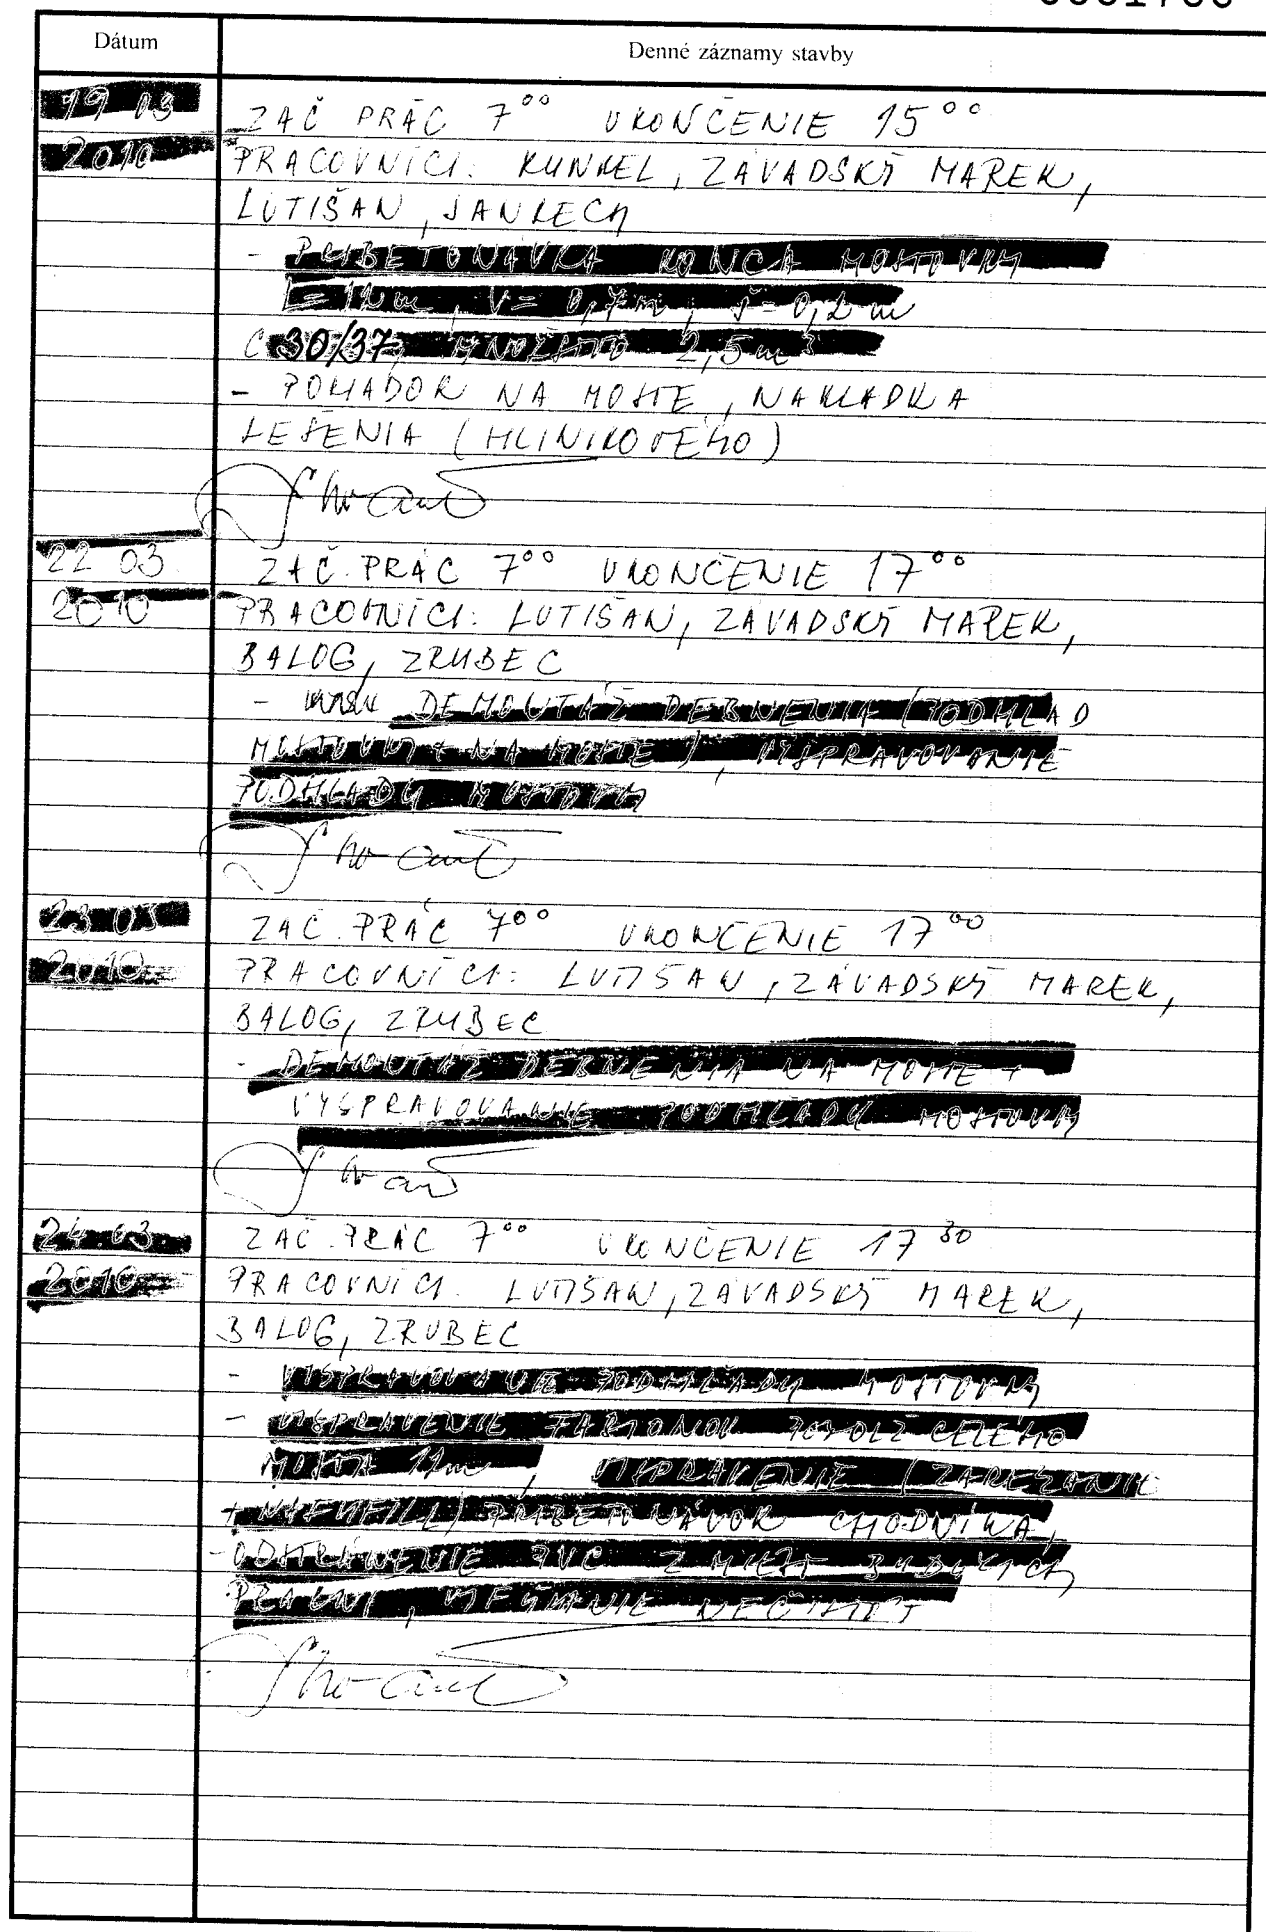 Dátum
Denné záznamy stavby
19 03 ZAČ PRÁC 7⁰⁰ UKONČENIE 15⁰⁰
2010 PRACOVNÍCI: KUNKEL, ZÁVADSKÝ MAREK,
LUTIŠAN, JANKECH
- PRIBETONÁVKA KONCA MOSTOVKY
l = 12 m, V = 0,7 m, š = 0,2 m
C 30/37, MNOŽSTVO 2,5 m³
- PORIADOK NA MOSTE, NAKLÁDKA
LEŠENIA (HLINÍKOVÉHO)
22 03. ZAČ. PRÁC 7⁰⁰ UKONČENIE 17⁰⁰
2010 PRACOVNÍCI: LUTIŠAN, ZÁVADSKÝ MAREK,
BALOG, ZRUBEC
- DEMONTÁŽ DEBNENIA (PODHĽAD
MOSTOVKY + NA MOSTE), VYSPRAVOVANIE
PODHĽADU MOSTOVKY
23 03 ZAČ. PRÁC 7⁰⁰ UKONČENIE 17⁰⁰
2010 PRACOVNÍCI: LUTIŠAN, ZÁVADSKÝ MAREK,
BALOG, ZRUBEC
- DEMONTÁŽ DEBNENIA NA MOSTE +
VYSPRAVOVANIE PODHĽADU MOSTOVKY
24.03. ZAČ. PRÁC 7⁰⁰ UKONČENIE 17³⁰
2010 PRACOVNÍCI: LUTIŠAN, ZÁVADSKÝ MAREK,
BALOG, ZRUBEC
- VYSPRAVOVANIE PODHĽADU MOSTOVKY
- VYSPRAVENIE POZDĹŽ CELÉHO
MOSTA 12m, VYSPRAVENIE (ZAREZANIE
+ ) PRIBETONÁVOK CHODNÍKA,
- ODSTRÁNENIE PVC Z MIEST BUDÚCICH
NEČISTÔT